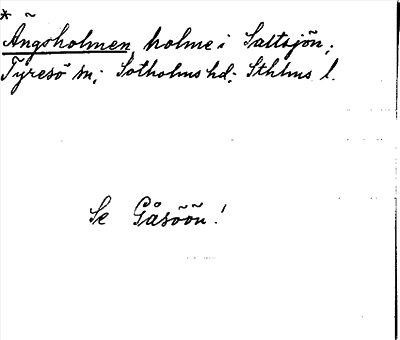 * Ängsholmen, holme i Saltsjön;
Tyresö sn; Sotholms hd; Sthlms l.
Se Gåsöön!